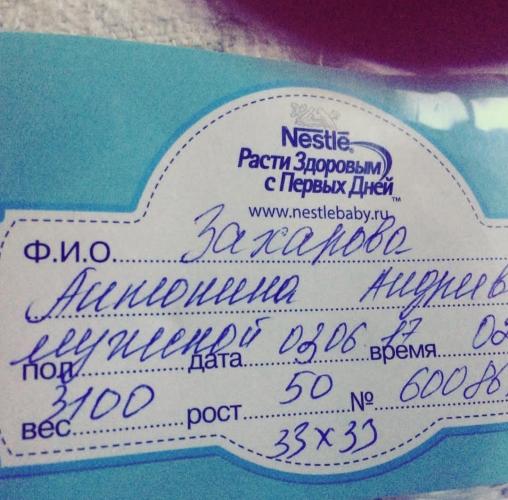 Nestlé
Расти Здоровым
с Первых Дней™
www.nestlebaby.ru
Ф.И.О. Захарова
Антонина Андреев
пол мужской дата 0306 17 время 02
вес 3100 рост 50 № 60086
33x33